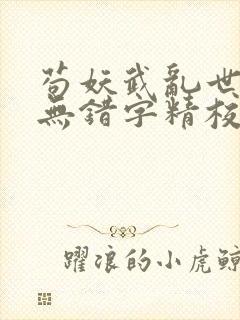 苟妖武亂世
無錯字精校
躍浪的小虎鯨